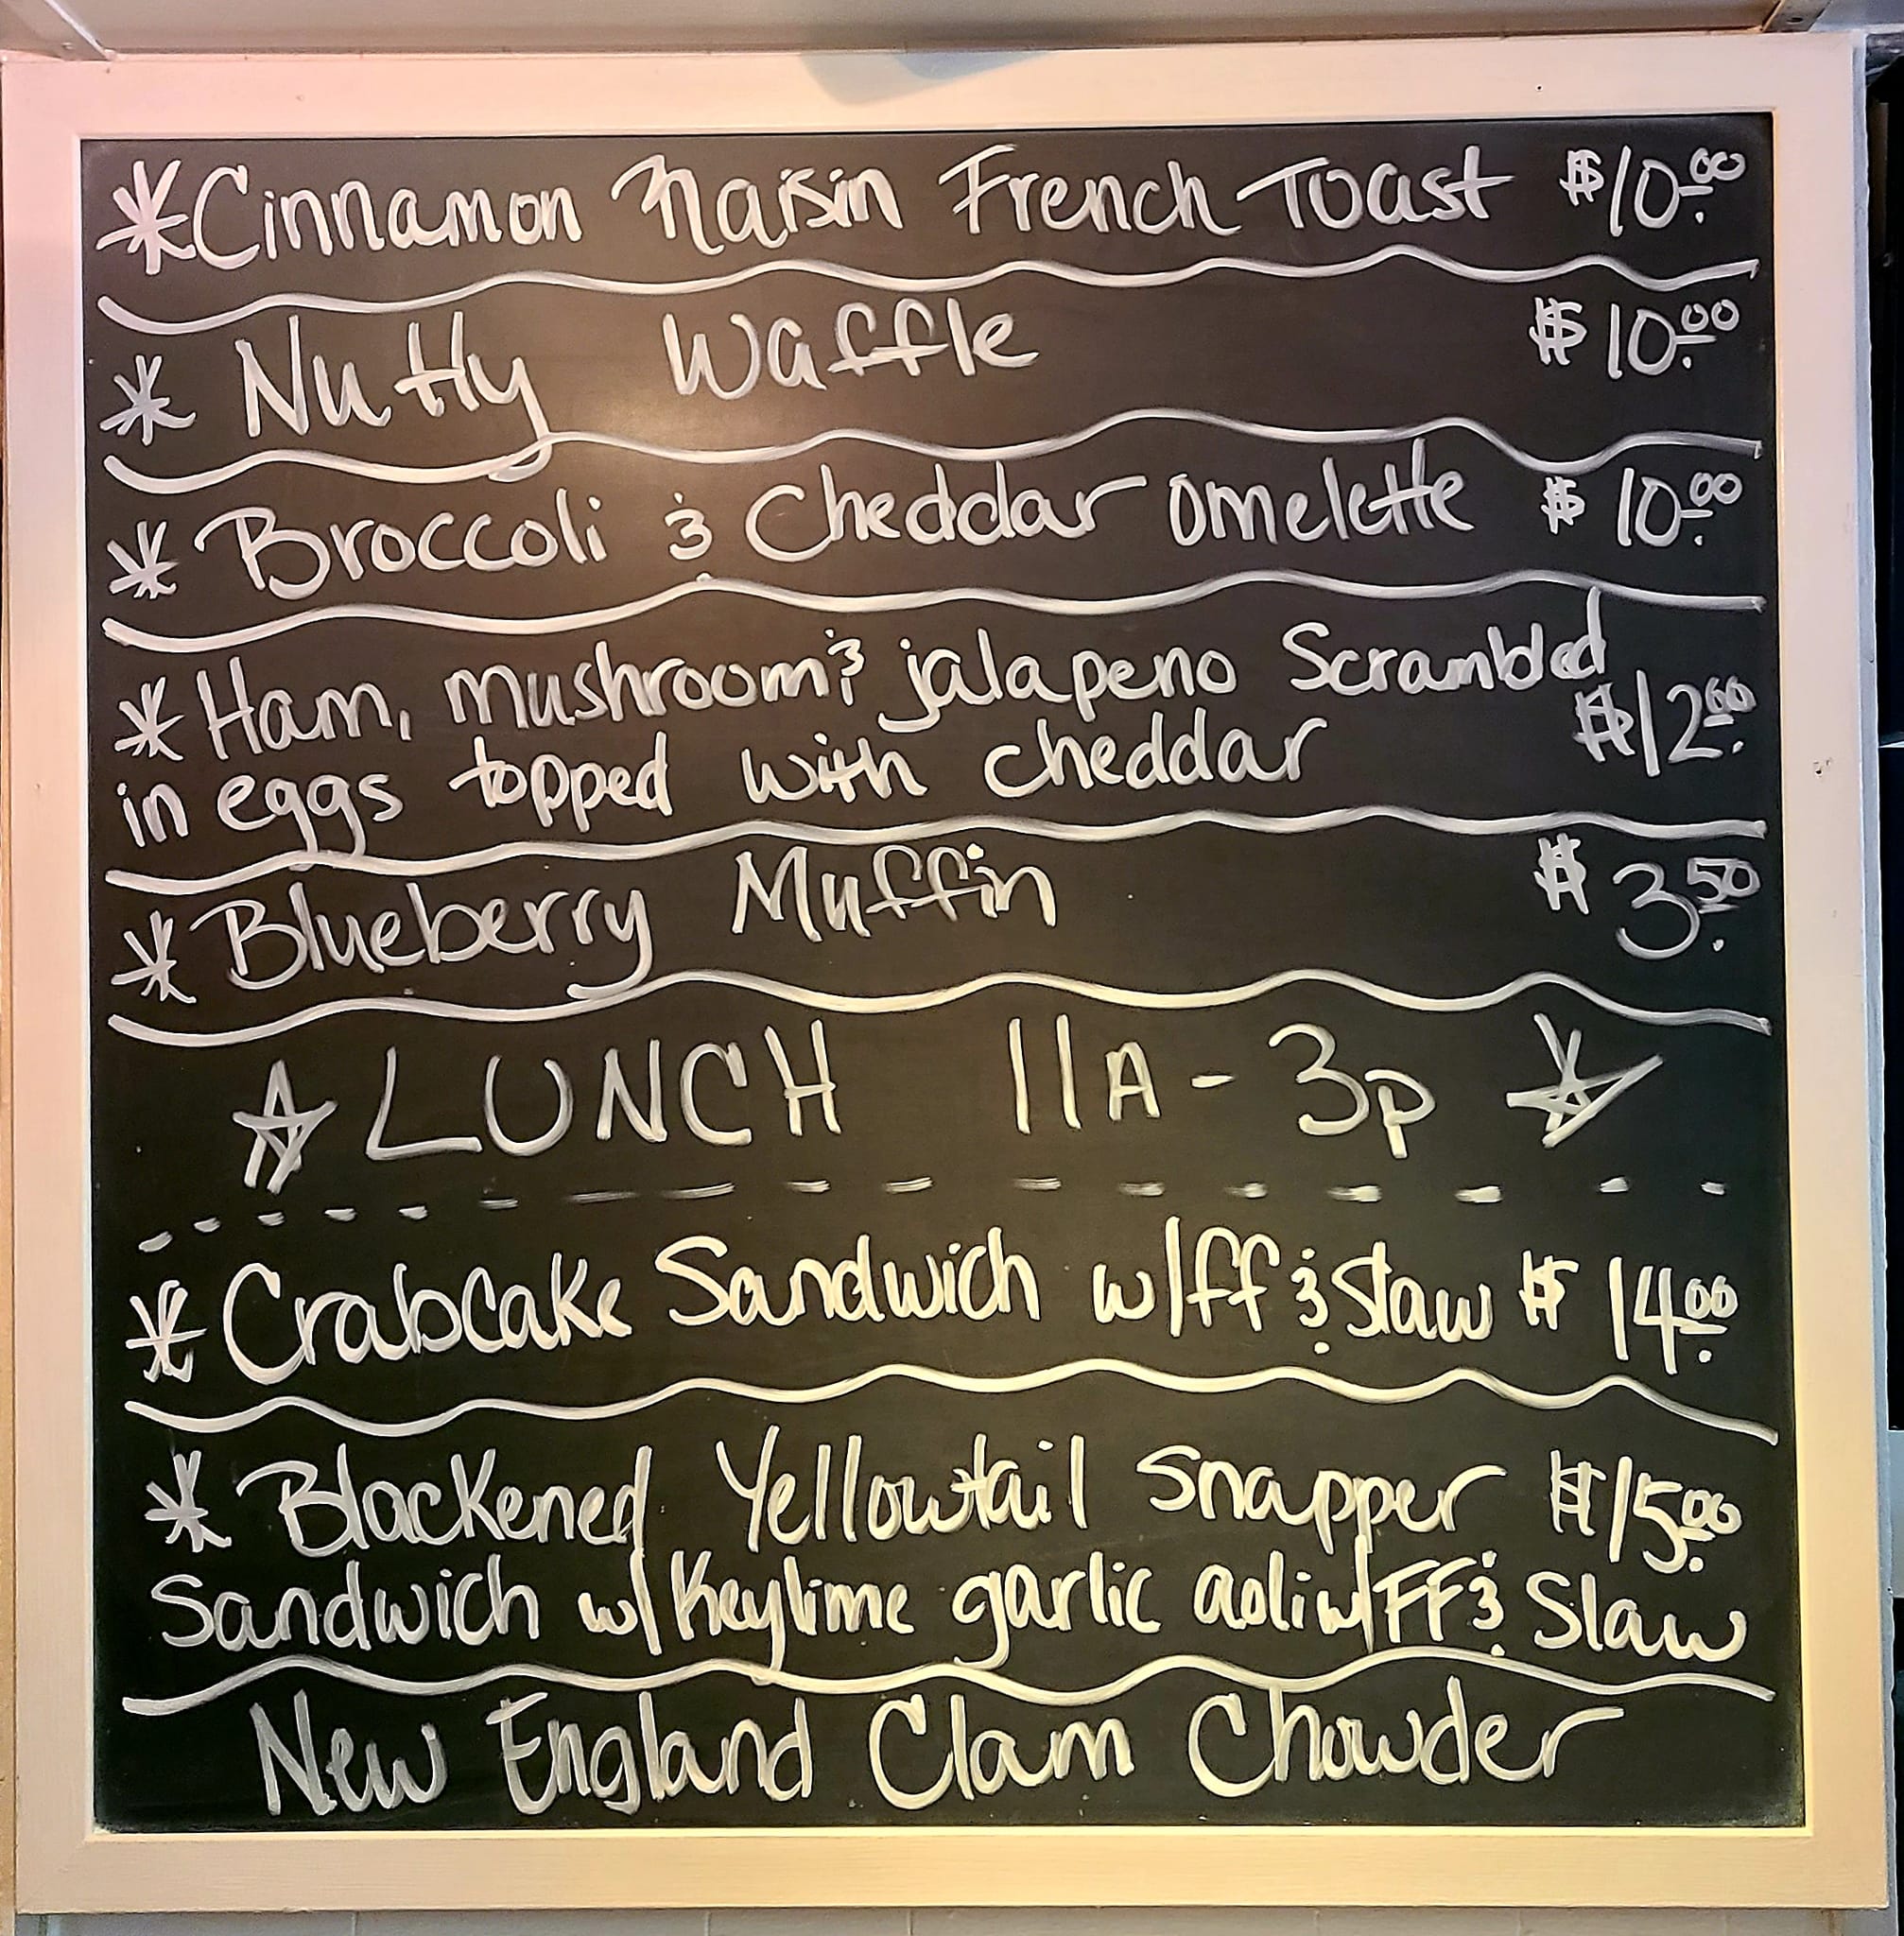 *Cinnamon Raisin French Toast $10.00
* Nutty Waffle $10.00
* Broccoli & Cheddar omelette $10.00
* Ham, mushroom & jalapeno Scrambled
in eggs topped with cheddar $12.00
* Blueberry Muffin $3.50
☆ LUNCH 11A - 3p ☆
* Crabcake Sandwich w/ff & Slaw $14.00
* Blackened Yellowtail Snapper $15.00
Sandwich w/ Keylime garlic aoli w/FF & Slaw
New England Clam Chowder